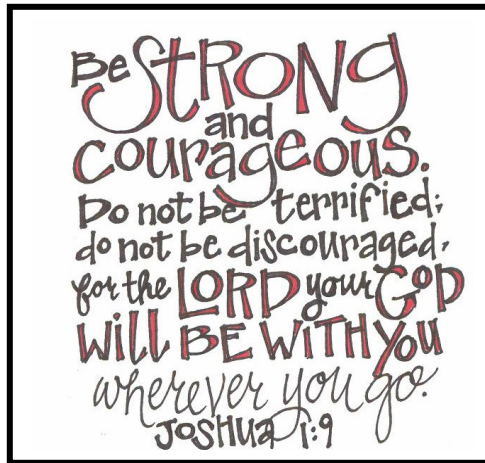 Be STRONG
and
courageous.
Do not be terrified;
do not be discouraged,
for the LORD your GOD
WILL BE WITH YOU
wherever you go.
JOSHUA 1:9